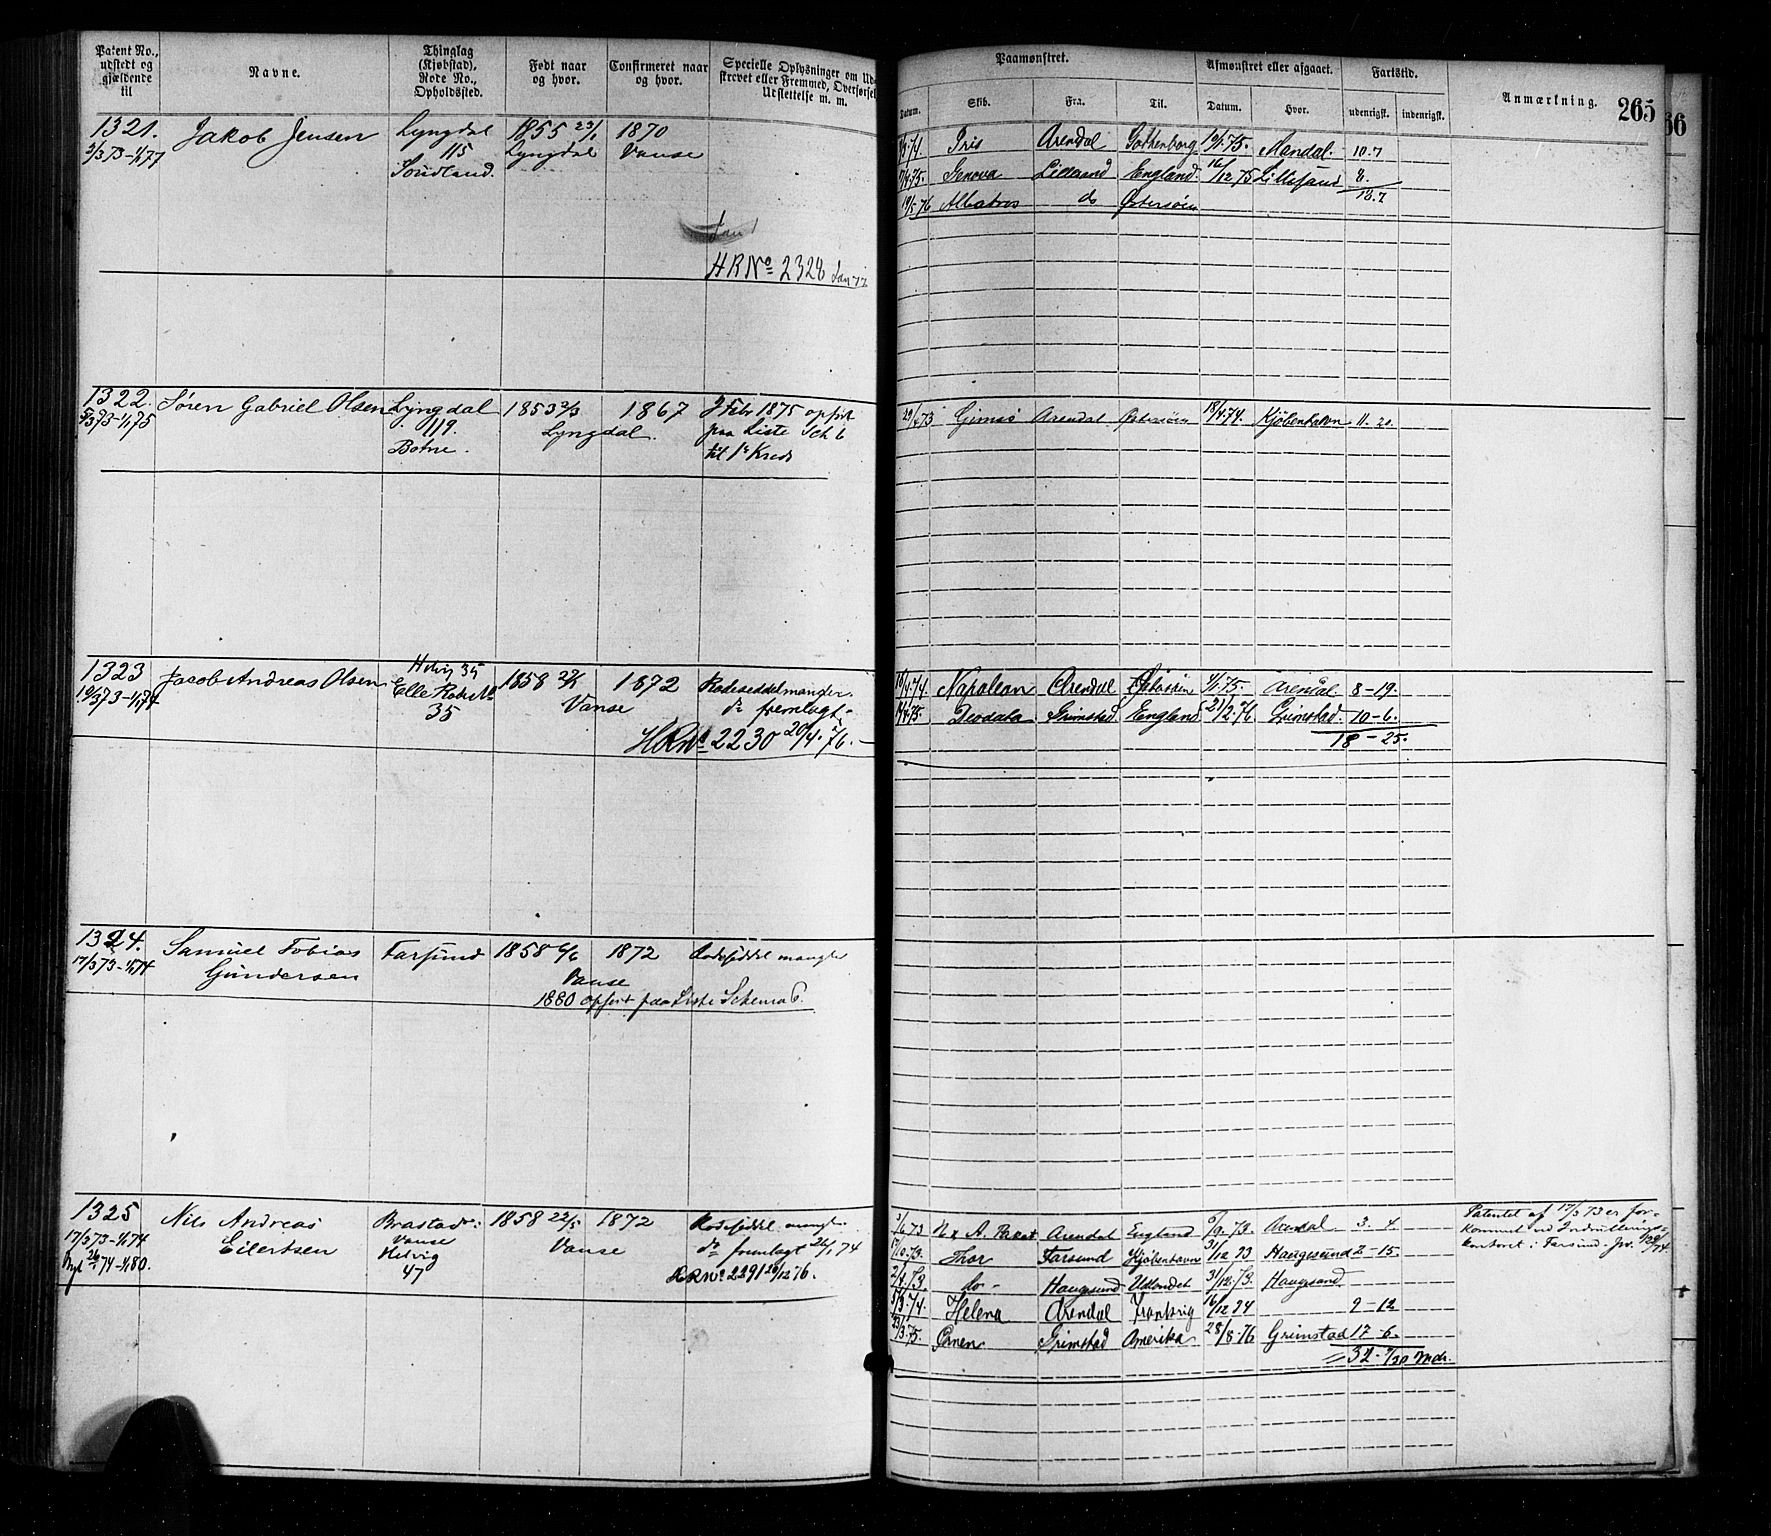 Patent No., udstedt og gjældende til
Navne.
Thinglag (Kjøbstad), Rode No., Opholdssted.
Født naar og hvor.
Confirmeret naar og hvor.
Specielle Oplysninger om Ud-
skrevet eller Fremmed, Overførsel
Udslettelse m. m.
Paamønstret.
Afmønstret eller afgaaet.
Fartstid.
Anmærkning.
265
66
Datum.
Skib.
Fra.
Til.
Datum.
Hvor.
udenrigsk.
indenrigsk.
1321. Jakob Jensen Lyngdal 1855 23/1 1870
3/3 73-1/1 77 115 Lyngdal Vanse
Soudland
Jan
HRNo 2328 Jan 77
74 Iris Arendal Gothenborg 75. Mandal. 10.7
17/4 75. Genova Lillesand England. 16/12 75 Lillesand 8.
18.7
19/5 76 Albatros do Østersøen
1322. Søren Gabriel Olsen Lyngdal 1853 2/3 1867 Febr 1875 opført
5/3 73-1/1 75 119. Lyngdal. paa Liste Sch 6
Botne. til 1ste Kreds
29/4 73 Gimsø Arendal Østersøen 18/4 74. Kjøbenhavn 11. 20.
1323 Jacob Andreas Olsen Helvig 35 1858 1872 Rodeseddel mangler.
19/3 73-1/1 74 Elle Rode No 35 Vanse do fremlagt.
HRNo 2230 20/4. 76.
74. Napoleon Arendal Østersøen 75. Arendal 8-19.
75. Deodata Grimstad England 21/2. 76 Grimstad. 10-6.
18-25.
1324. Samuel Tobias Farsund 1858 6/6 1872 Rodeseddel mangler
17/3 73-1/1 74 Gundersen Vanse
1880 opført paa Liste Schema 6.
1325 Nils Andreas Brastad 1858 22/5 1872 Rodeseddel mangl.
17/3 73-1/1 74 Eilertsen Vanse Vanse do fremlagt 26/1 74
26/1 74-1/1 80. Helvig
47 HRNo 2291 20/12 76.
3/6 73 N. A. Arendal England 73. Arendal 3. 4
17/10 73. Thor Farsund Kjøbenhavn 31/12 73 Haugesund 2-15.
do- Haugesund Udlandet 31/12. 73. Haugesund
74. Helena Arendal Frankrig 16/12 74 9-12
23/3. 75. Ørnen Grimstad Amerika 28/8. 76 Grimstad 17-6.
Mdr.
Patentet af 17/3 73 er for-
kommet ved Indrullerings-
kontoret i Farsund.